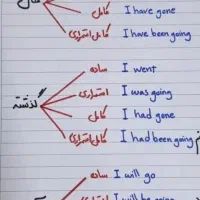 حال
کامل I have gone
کامل استمراری I have been going
گذشته
ساده I went
استمراری I was going
کامل I had gone
کامل استمراری I had been going
ساده I will go
استمراری I will be going